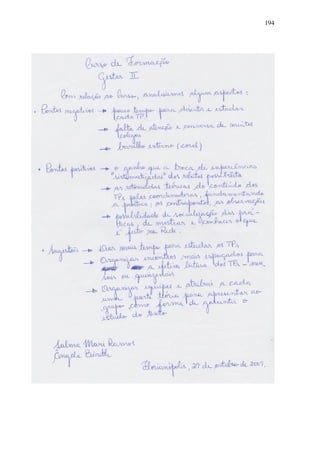 194
Curso de Formação
Gestar II
Com relação ao Curso, analisamos alguns aspectos:
• Pontos negativos → pouco tempo para discutir e estudar
cada TP
→ falta de atenção e conversa de muitos
colegas
→ barulho externo (coral)
• Pontos positivos → o ganho que a troca de experiências
"sistematizadas" dos relatos possibilita
→ as retomadas teóricas do conteúdo dos
TPs pelas coordenadoras, fundamentando
a prática; os contrapontos, as observações
→ possibilidade de socialização das prá-
ticas, de mostrar e conhecer o que
é feito na Rede.
• Sugestões → Dar mais tempo para estudar os TPs
→ Organizar encontros mais espaçados para
a efetiva leitura dos TPs -
sais ou quinzenais
→ Organizar equipes e atribuir a cada
uma parte teoria para apresentar ao
grupo como forma de garantir o
estudo do texto
Salma Mari Ramos
Ângela
Florianópolis, 29 de outubro de 2009.